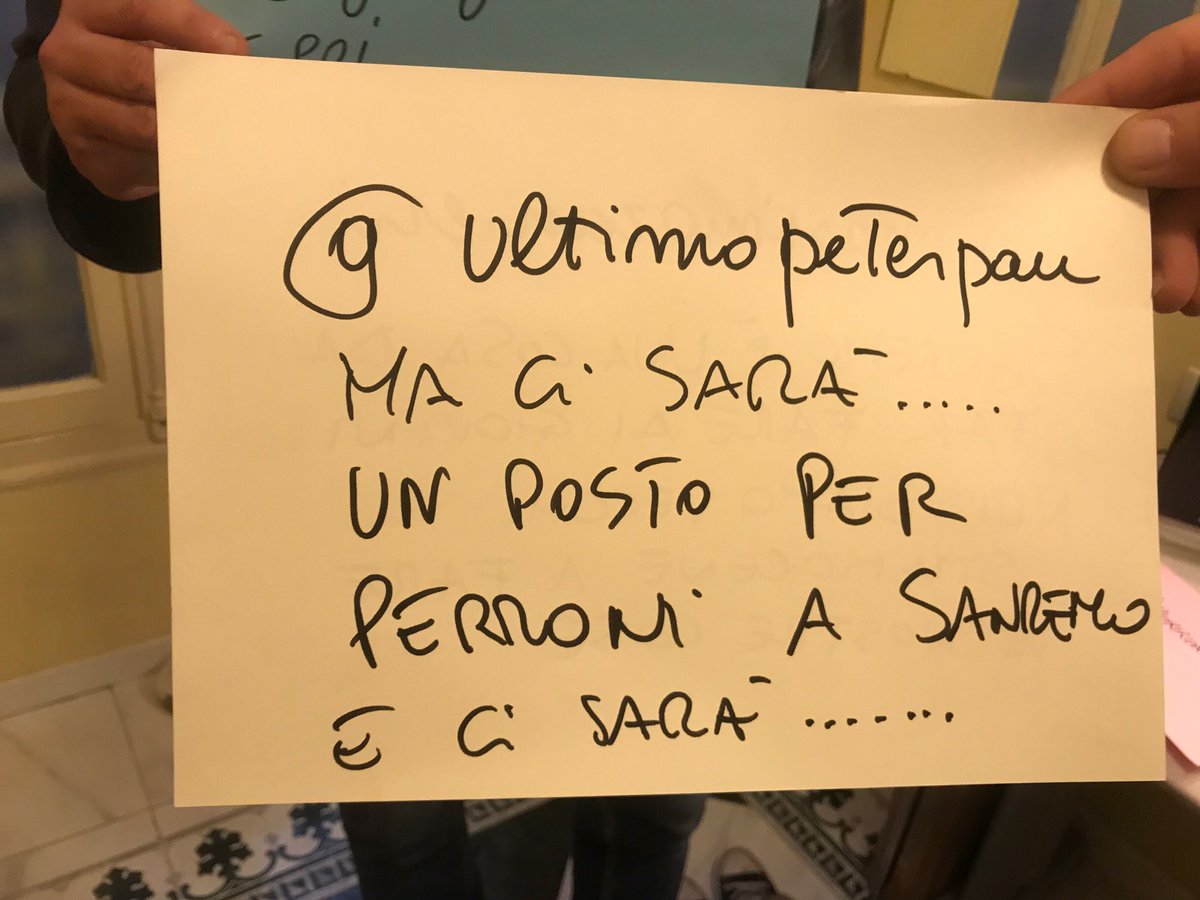 poi
@ultimopeterpan
MA Ci SARÀ.....
UN POSTO PER
PERRONi A SANREMO
E Ci SARÀ.......